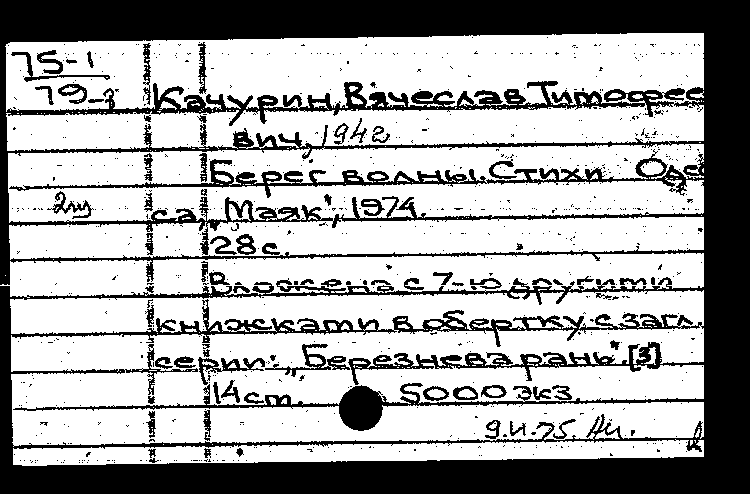 75-1
79-3
Качурин, Вячеслав Тимофее
вич, 1942
Берег волны. Стихи. Одес
2 экз
са, „Маяк“, 1974.
28 с.
Вложена с 7-ю другими
книжками в обертку с загл.
серии: „Березнева рань“. [3]
14 ст. 5000 экз.
9.
75.